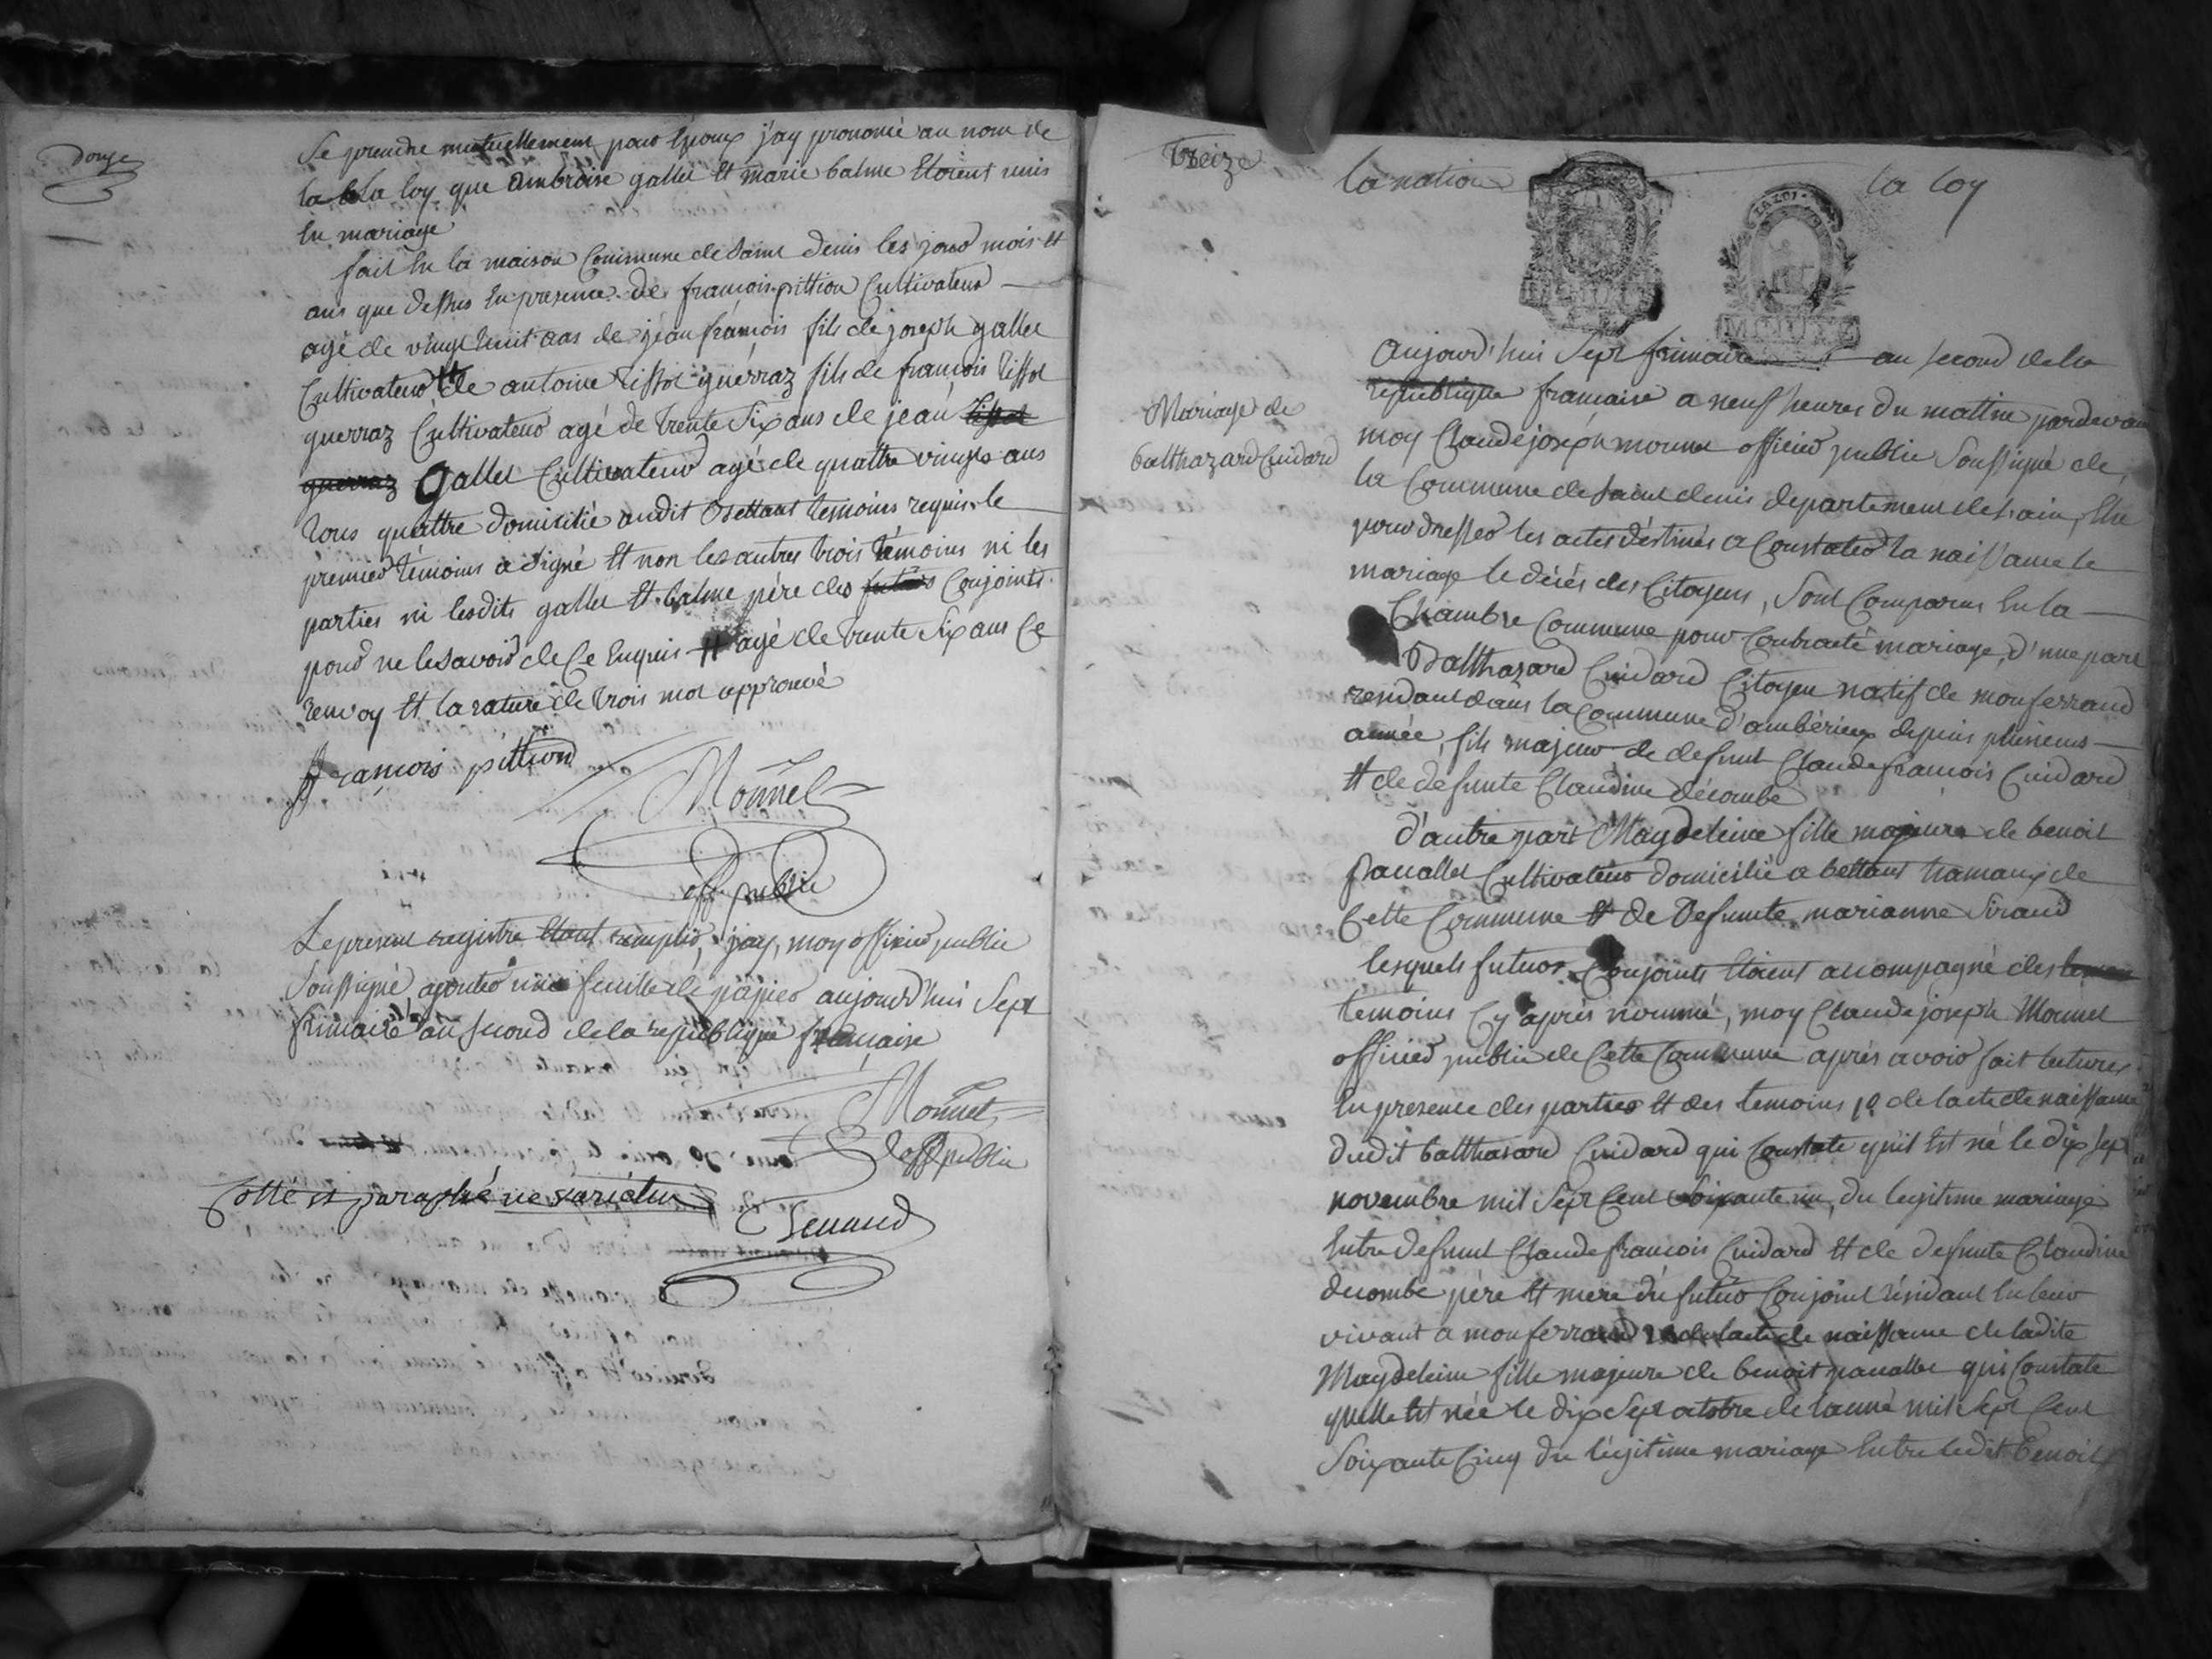 douze
se prendre mutuellement pour Epoux j'ay prononcé au nom de
la la loy que ambroise gallet Et marie balme Etoient unis
En mariage
fait En la maison Commune de Saint denis les jour mois Et
ans que dessus En presence de francois pittion Cultivateur
agé de vingt huit ans de jean francois fils de joseph gallet
Cultivateur # de antoine tissot guerraz fils de francois tissot
guerraz Cultivateur agé de trente six ans de jean tissot
guerraz Gallet Cultivateur agé de quattre vingts ans
tous quattre domicilié audit Bettant temoins requis le
premier témoins a signé Et non les autres trois témoins ni les
parties ni lesdits gallet Et balme père des futurs Conjoints
pour ne le savoir de Ce Enquis # agé de trente six ans Ce
renvoy Et la rature de trois mot approuvé
francois pittion
Monnet
off. public
Le present registre Etant remplis, j'ay, moy officier public
soussigné, ajouter une feuille de papier aujourd'hui sept
frimaire l'an second de la republique francaise
Monnet
off public
Cotté et paraphé ne varietur
treize
la nation la loy
LA LOI
Mariage de
balthazard Cuidard
Aujourd'hui sept frimaire an second de la
republique francaise a neuf heures du mattin pardevant
moy Claude joseph monnet officier public soussigné de
la Commune de saint denis departement de l'ain, Elu
pour dresser les actes déstinés a Constater la naissance le
mariage le décés des Citoyens, sont Comparus En la
Chambre Commune pour Contracté mariage, d'une part
Balthazard Cuidard Citoyen natif de monferrand
residant dans la Commune d'ambérieux depuis plusieurs
année, fils majeur de defunt Claude francois Cuidard
Et de défunte Claudine décombe
d'autre part Magdeleine fille majeure de benoit
pauallet Cultivateur domicilié a bettant hamaux de
Cette Commune Et de Defunte marianne Siraud
lesquels futurs Conjoints Etoient accompagné des
temoins Cy après nommé, moy Claude joseph Monnet
officier public de Cette Commune après avoir fait lectures
En presence des parties Et des temoins 1º de l'acte de naissance
dudit balthazard Cuidard qui Constate qu'il Est né le dix sept
novembre mil sept Cent soixante un, du legitime mariage
Entre defunt Claude francois Cuidard Et de defunte Claudine
decombe père Et mere du futur Conjoint résidant En leur
vivant a monferrand 2º de l'acte de naissance de ladite
Magdeleine fille majeure de benoit pauallet qui Constate
quelle Est née le dix sept octobre de l'année mil sept Cent
soixante Cinq du légitime mariage Entre ledit benoit